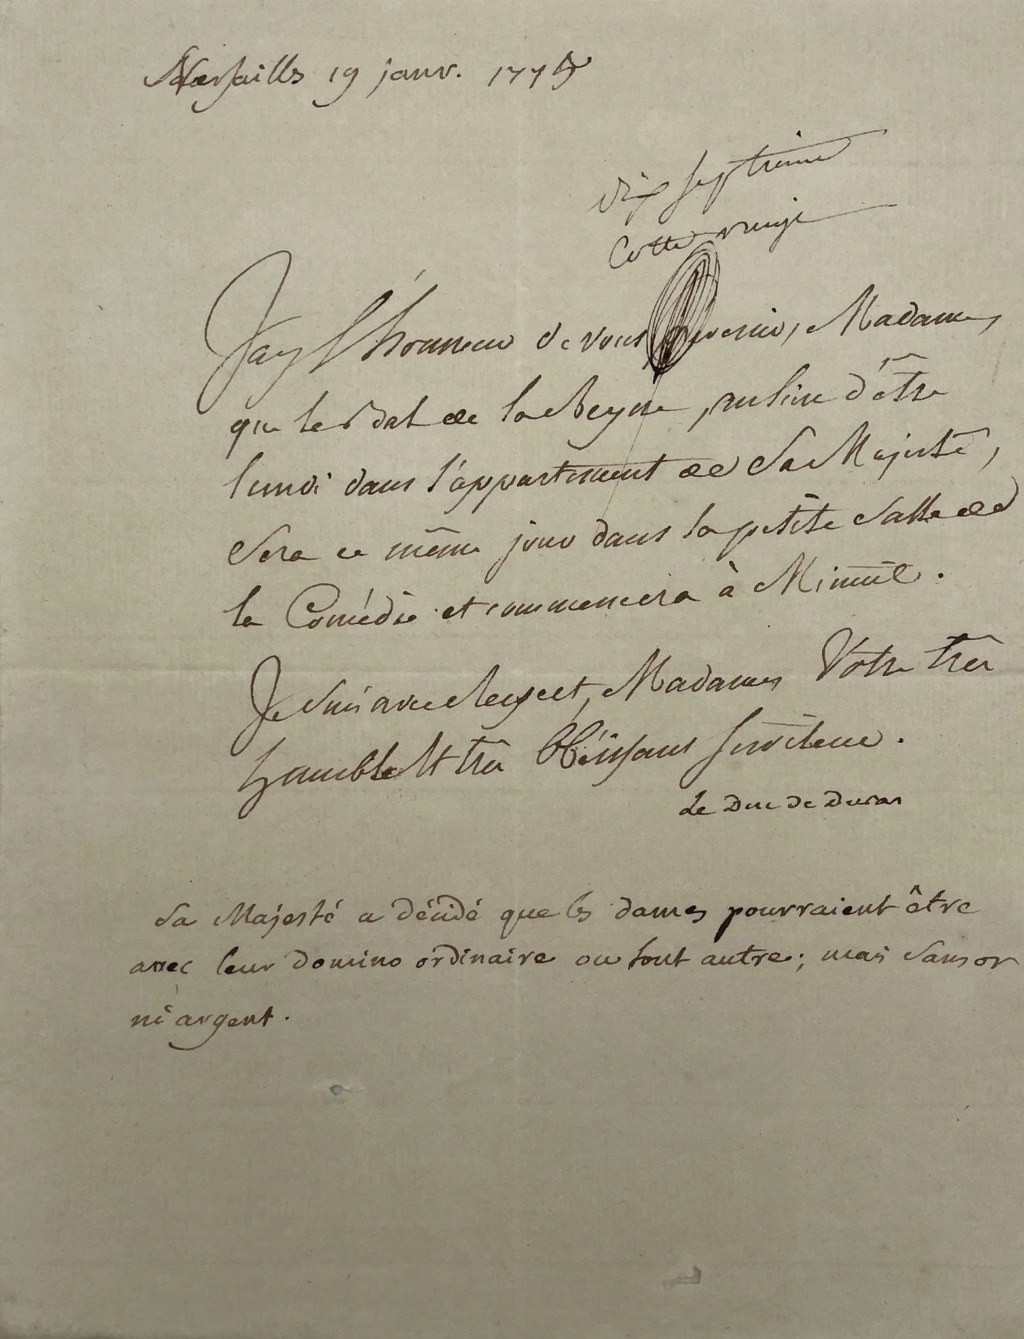 Versailles 19 janv. 1775
dix septieme
Cotte vingt
J'ay l'honneur de vous prevenir, Madame,
que le Bal de la Reyne, au lieu d'être
lundi dans l'appartement de Sa Majesté,
Sera ce même jour dans la petite Salle de
la Comédie et commencera à Minuit.
Je suis avec Respect, Madame, Votre très
humble Et très Obéissant serviteur.
Le Duc de Duras
Sa Majesté a décidé que les dames pourraient être
avec leur domino ordinaire ou tout autre; mais sans or
ni argent.